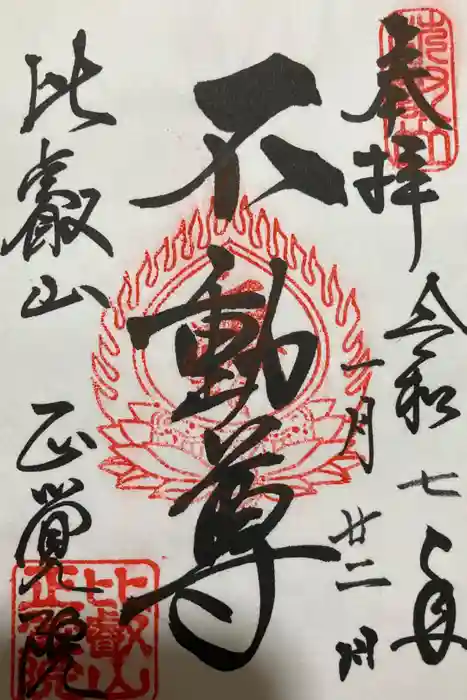 奉拝
令和七年
一月
廿二日
不動尊
比叡山
正覺院
比叡山
正覺院